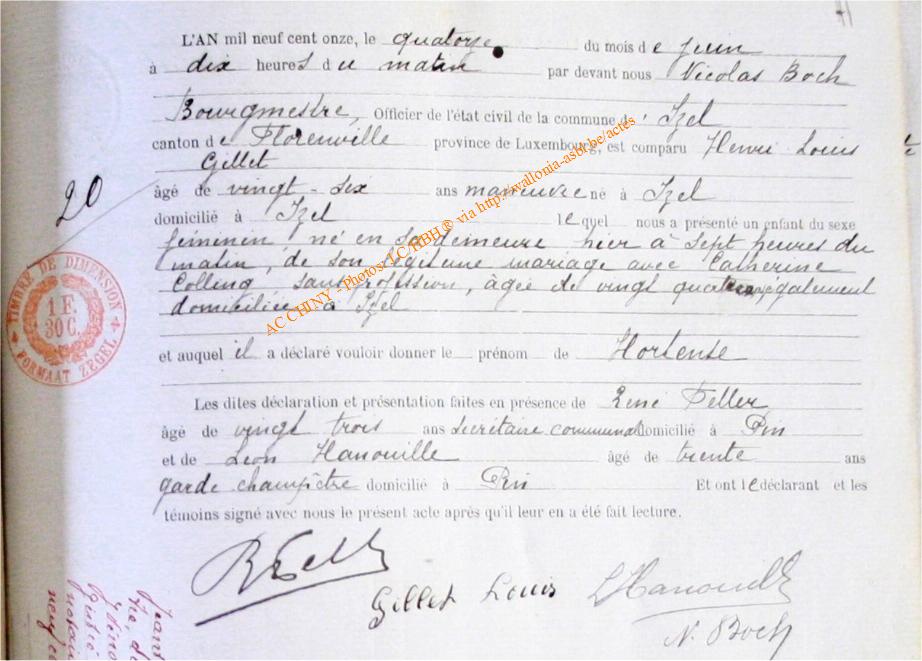 L'AN mil neuf cent onze, le quatorze du mois de juin
à dix heures du matin par devant nous Nicolas Boch
Bourgmestre, Officier de l'état civil de la commune de Izel
canton de Florenville province de Luxembourg, est comparu Henri Louis
Gillet
20
âgé de vingt-six ans manœuvre né à Izel
domicilié à Izel lequel nous a présenté un enfant du sexe
féminin né en sa demeure hier à sept heures du
matin, de son légitime mariage avec Catherine
Colling sans profession, âgée de vingt quatre, également
domiciliée à Izel
et auquel il a déclaré vouloir donner le prénom de Hortense
Les dites déclaration et présentation faites en présence de René Peller
âgé de vingt trois ans secrétaire communal domicilié à Pin
et de Léon Hanouille âgé de trente ans
garde champêtre domicilié à Pin Et ont le déclarant et les
témoins signé avec nous le présent acte après qu'il leur en a été fait lecture.
Gillet Louis
L Hanouille
N. Boch
TIMBRE DE DIMENSION
1 F.
30 C.
FORMAAT ZEGEL
AC CHINY - Photos: LC/RBH ® via http://wallonia-asbl.be/actes